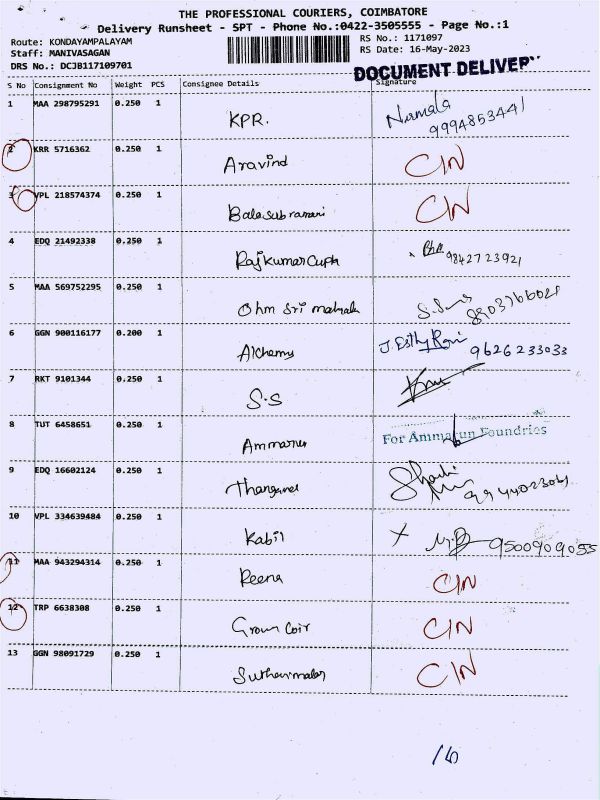 THE PROFESSIONAL COURIERS, COIMBATORE
Delivery Runsheet - SPT - Phone No.:0422-3505555 - Page No.:1
Route: KONDAYAMPALAYAM RS No.: 1171097
Staff: MANIVASAGAN RS Date: 16-May-2023
DRS No.: DCJB117109701 DOCUMENT DELIVER
S No Consignment No Weight PCS Consignee Details Signature
1 MAA 298795291 0.250 1 KPR. Nirmala
9994853441
2 KRR 5716362 0.250 1 Aravind CIN
3 VPL 218574374 0.250 1 Balasubramani CIN
4 EDQ 21492338 0.250 1 Rajkumar Gupta 9842723921
5 MAA 569752295 0.250 1 Ohm Sri
6 GGN 900116177 0.200 1 Alchemy J. Esthy Rani 9626233033
7 RKT 9101344 0.250 1 S.S
8 TUT 6458651 0.250 1 Ammarun For Ammarun Foundries
9 EDQ 16602124 0.250 1
10 VPL 334639484 0.250 1 Kabil 9500909055
11 MAA 943294314 0.250 1 Reena CIN
12 TRP 6638308 0.250 1 Coir CIN
13 GGN 98091729 0.250 1 CIN